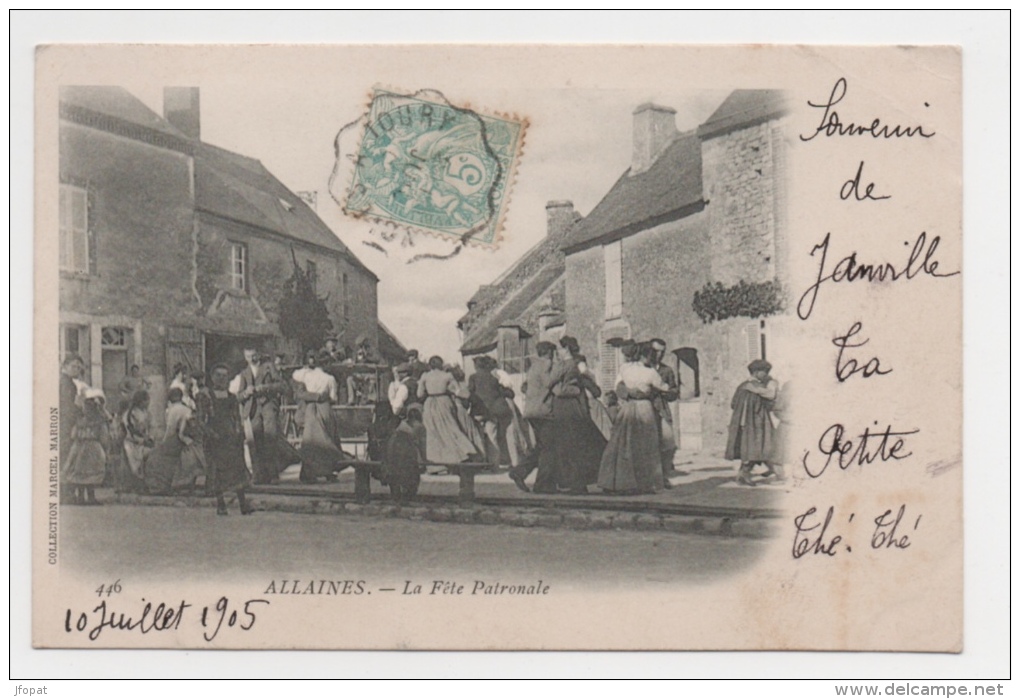 JOURY
5
Souvenir
de
Janville
Ta
Petite
Thé. Thé
COLLECTION MARCEL MARRON
446
ALLAINES. — La Fête Patronale
10 Juillet 1905
jfopat
www.delcampe.net